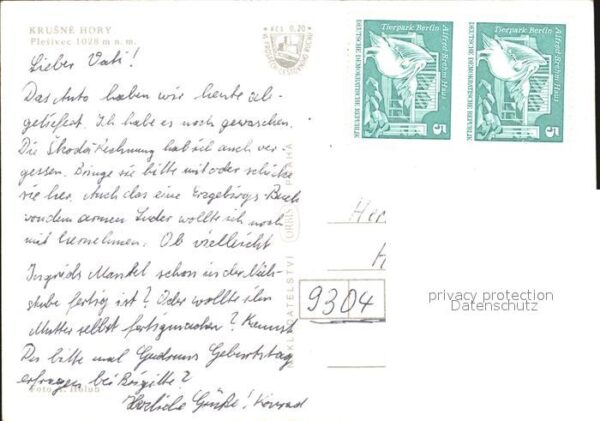 KRUŠNÉ HORY
Plešivec 1028 m n. m.
Kčs 0,20
Lieber Vati!
Das Auto haben wir heute ab-
geliefert. Ich habe es noch gewaschen.
Die Škoda Rechnung hab ich auch ver-
gessen. Bringe sie bitte mit oder schicke
sie her. Auch das eine Erzgebirgs Buch
von dem armen Luder wollte ich noch
mit hernehmen. Ob vielleicht
Ingrids Mantel schon in der Näh-
stube fertig ist? Oder wollte ihn
Mutter selbst fertigmachen? Kannst
Du bitte mal Gudruns Geburtstag
erfragen bei Brigitte?
Herzliche Grüße! Konrad
Foto A. Holub
NAKLADATELSTVÍ ORBIS PRAHA
DEUTSCHE DEMOKRATISCHE REPUBLIK
Tierpark Berlin
Alfred-Brehm-Haus
5
DEUTSCHE DEMOKRATISCHE REPUBLIK
Tierpark Berlin
Alfred-Brehm-Haus
5
Her
9304
privacy protection
Datenschutz